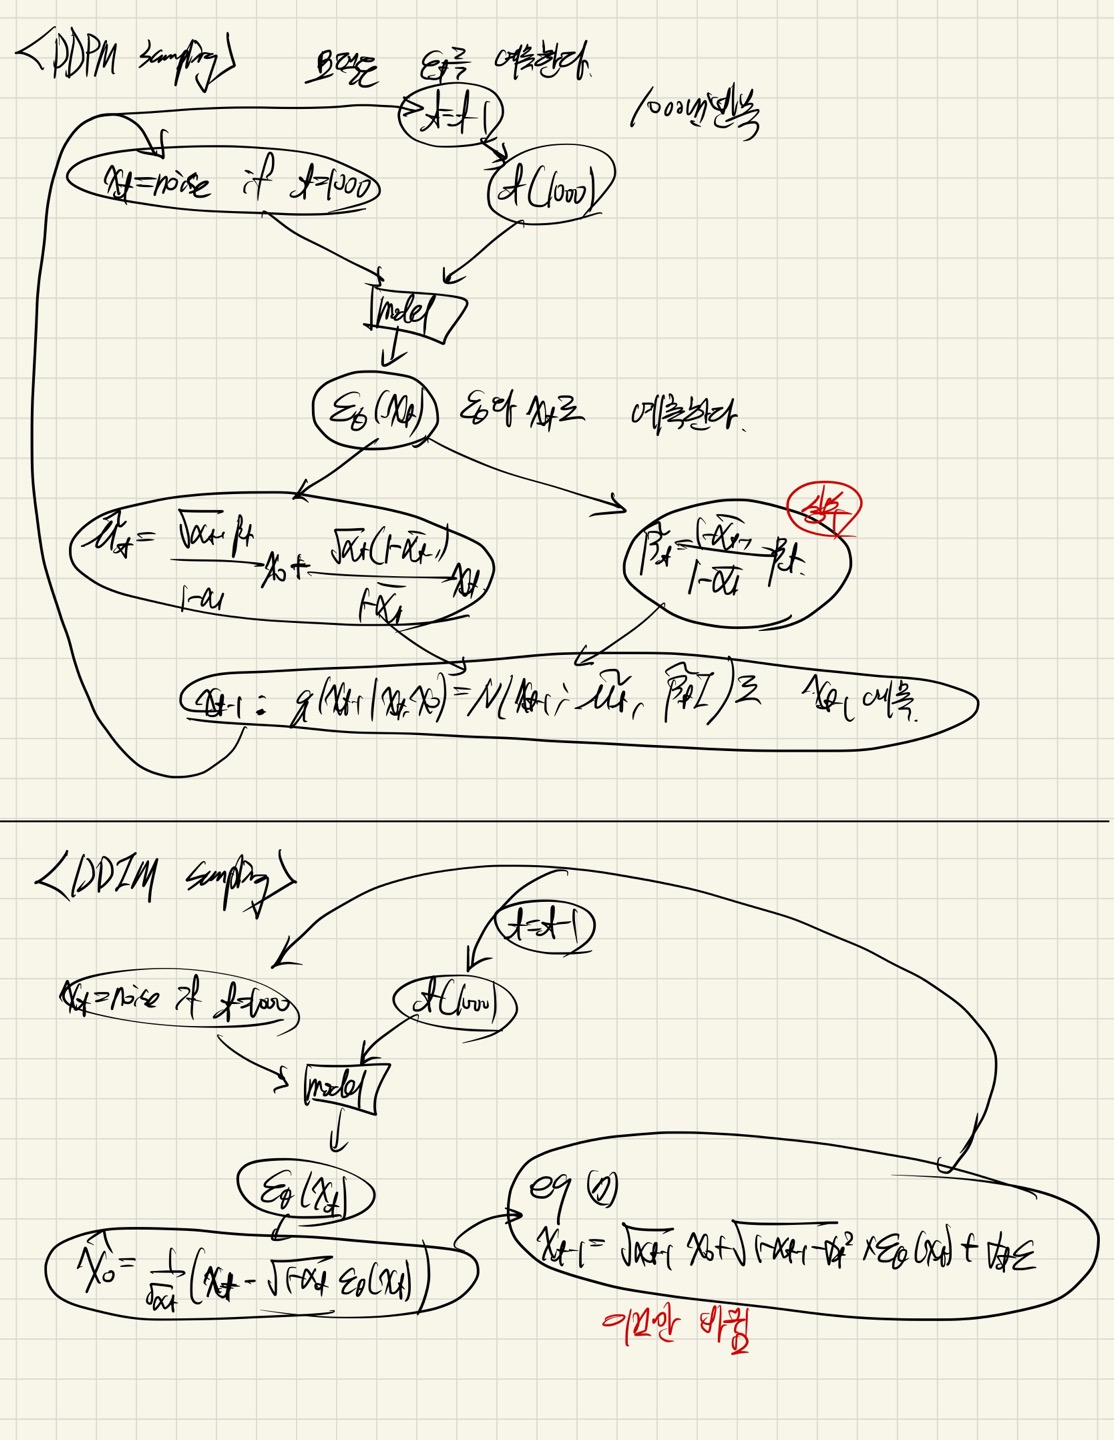 <DDPM sampling>
모델은 εt를 예측한다.
t=t-1
1000번 반복
xt=noise if t=1000
t(1000)
model
εθ(xt)
εθ와 xt로 예측한다.
상수
μ̃t = √ᾱt-1 βt / 1-ᾱt x0 + √αt(1-ᾱt-1) / 1-ᾱt xt
β̃t = 1-ᾱt-1 / 1-ᾱt βt
xt-1 : q(xt-1|xt,x0)=N(xt-1; μ̃t, β̃tI)로 xt-1 예측
<DDIM sampling>
t=t-1
xt=noise if t=1000
t(1000)
model
εθ(xt)
x̂0 = 1/√αt (xt - √1-αt εθ(xt))
eq
xt-1 = √αt-1 x0 + √1-αt-1-σt² × εθ(xt) + σtε
이것만 바뀜